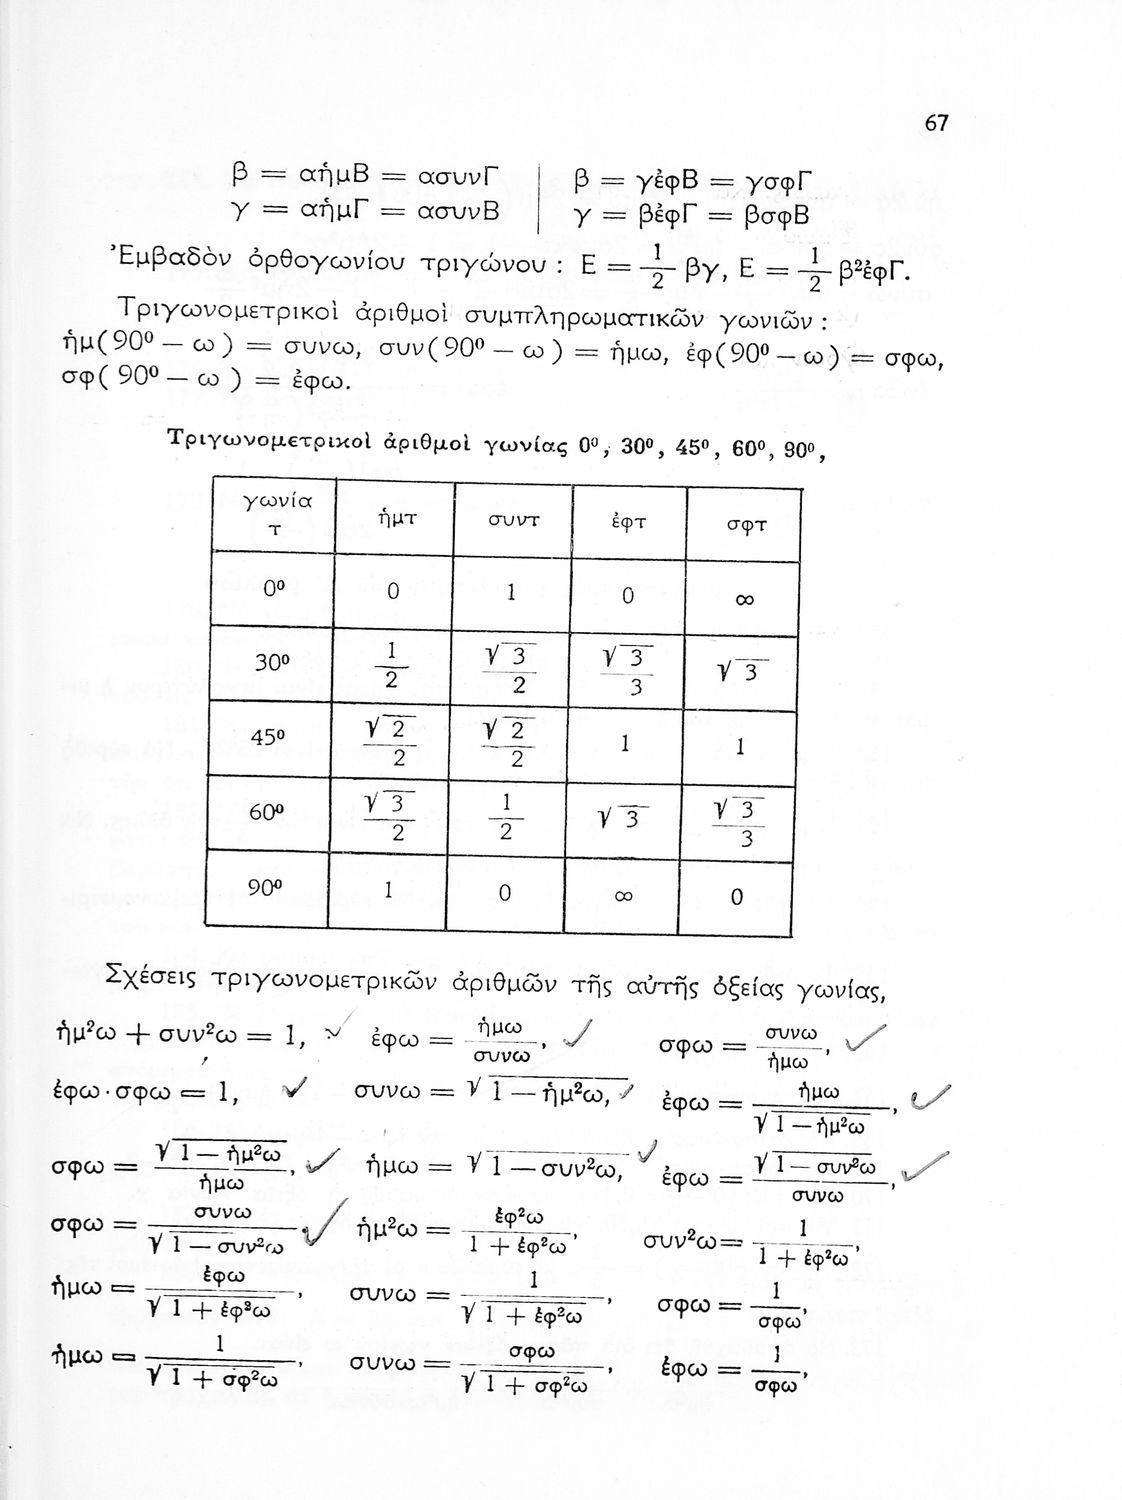 67
β = αἡμΒ = ασυνΓ | β = γἐφΒ = γσφΓ
γ = αἡμΓ = ασυνΒ | γ = βἐφΓ = βσφΒ
Ἐμβαδὸν ὀρθογωνίου τριγώνου : Ε = 1/2 βγ, Ε = 1/2 β²ἐφΓ.
Τριγωνομετρικοὶ ἀριθμοὶ συμπληρωματικῶν γωνιῶν :
ἡμ(90⁰ — ω) = συνω, συν(90⁰ — ω) = ἡμω, ἐφ(90⁰ — ω) = σφω,
σφ( 90⁰ — ω ) = ἐφω.
Τριγωνομετρικοὶ ἀριθμοὶ γωνίας 0⁰, 30⁰, 45⁰, 60⁰, 90⁰,
γωνία τ | ἡμτ | συντ | ἐφτ | σφτ
0⁰ | 0 | 1 | 0 | ∞
30⁰ | 1/2 | √3/2 | √3/3 | √3
45⁰ | √2/2 | √2/2 | 1 | 1
60⁰ | √3/2 | 1/2 | √3 | √3/3
90⁰ | 1 | 0 | ∞ | 0
Σχέσεις τριγωνομετρικῶν ἀριθμῶν τῆς αὐτῆς ὀξείας γωνίας,
ἡμ²ω + συν²ω = 1, ἐφω = ἡμω/συνω, σφω = συνω/ἡμω,
ἐφω·σφω = 1, συνω = √(1 — ἡμ²ω), ἐφω = ἡμω/√(1 — ἡμ²ω),
σφω = √(1 — ἡμ²ω)/ἡμω, ἡμω = √(1 — συν²ω), ἐφω = √(1 — συν²ω)/συνω,
σφω = συνω/√(1 — συν²ω), ἡμ²ω = ἐφ²ω/(1 + ἐφ²ω), συν²ω = 1/(1 + ἐφ²ω),
ἡμω = ἐφω/√(1 + ἐφ²ω), συνω = 1/√(1 + ἐφ²ω), σφω = 1/σφω,
ἡμω = 1/√(1 + σφ²ω), συνω = σφω/√(1 + σφ²ω), ἐφω = 1/σφω,